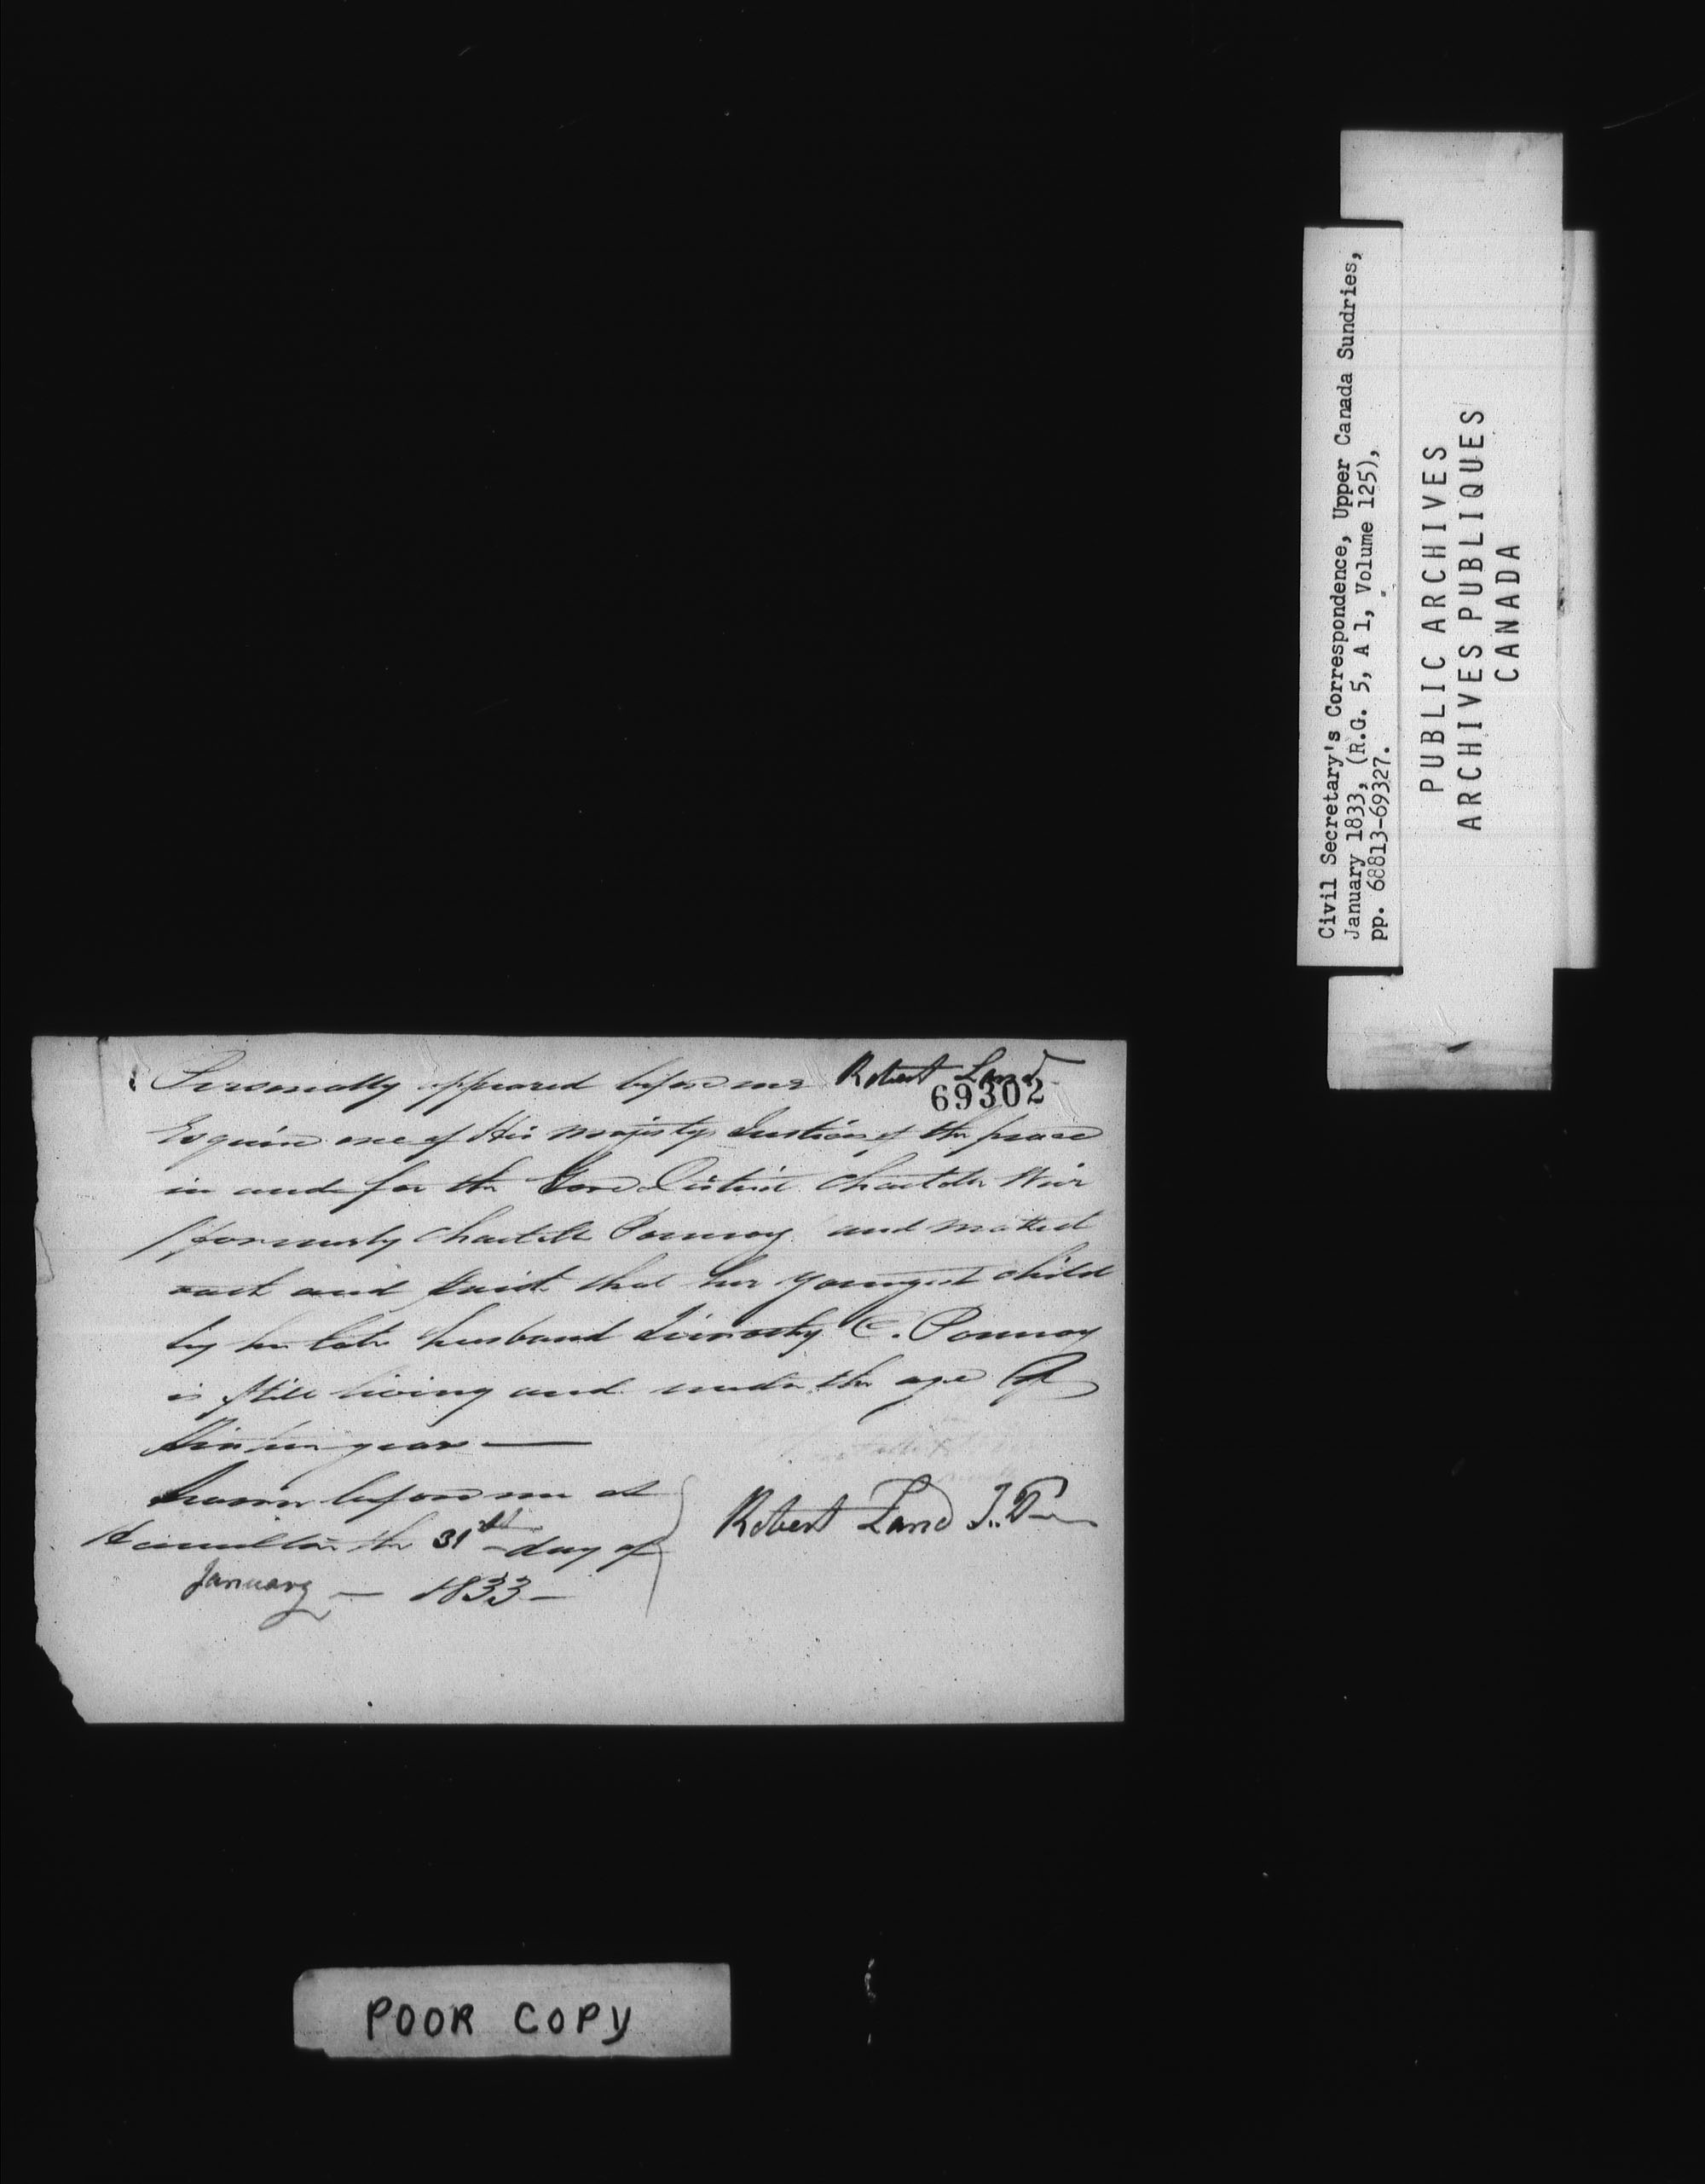 Personally appeared before me Robert Land
69302
Esquire one of His Majestys Justices of the peace
in and for the Gore District Charlotte Weir
formerly Charlotte Pomroy and maketh
oath and saith that her youngest child
by her late husband Timothy C. Pomroy
is still living and under the age of
Sixteen years —
Sworn before me at
Hamilton the 31st day of
January — 1833 —
Robert Land J.P.
Civil Secretary's Correspondence, Upper Canada Sundries,
January 1833, (R.G. 5, A 1, Volume 125),
pp. 68813-69327.
PUBLIC ARCHIVES
ARCHIVES PUBLIQUES
CANADA
POOR COPY